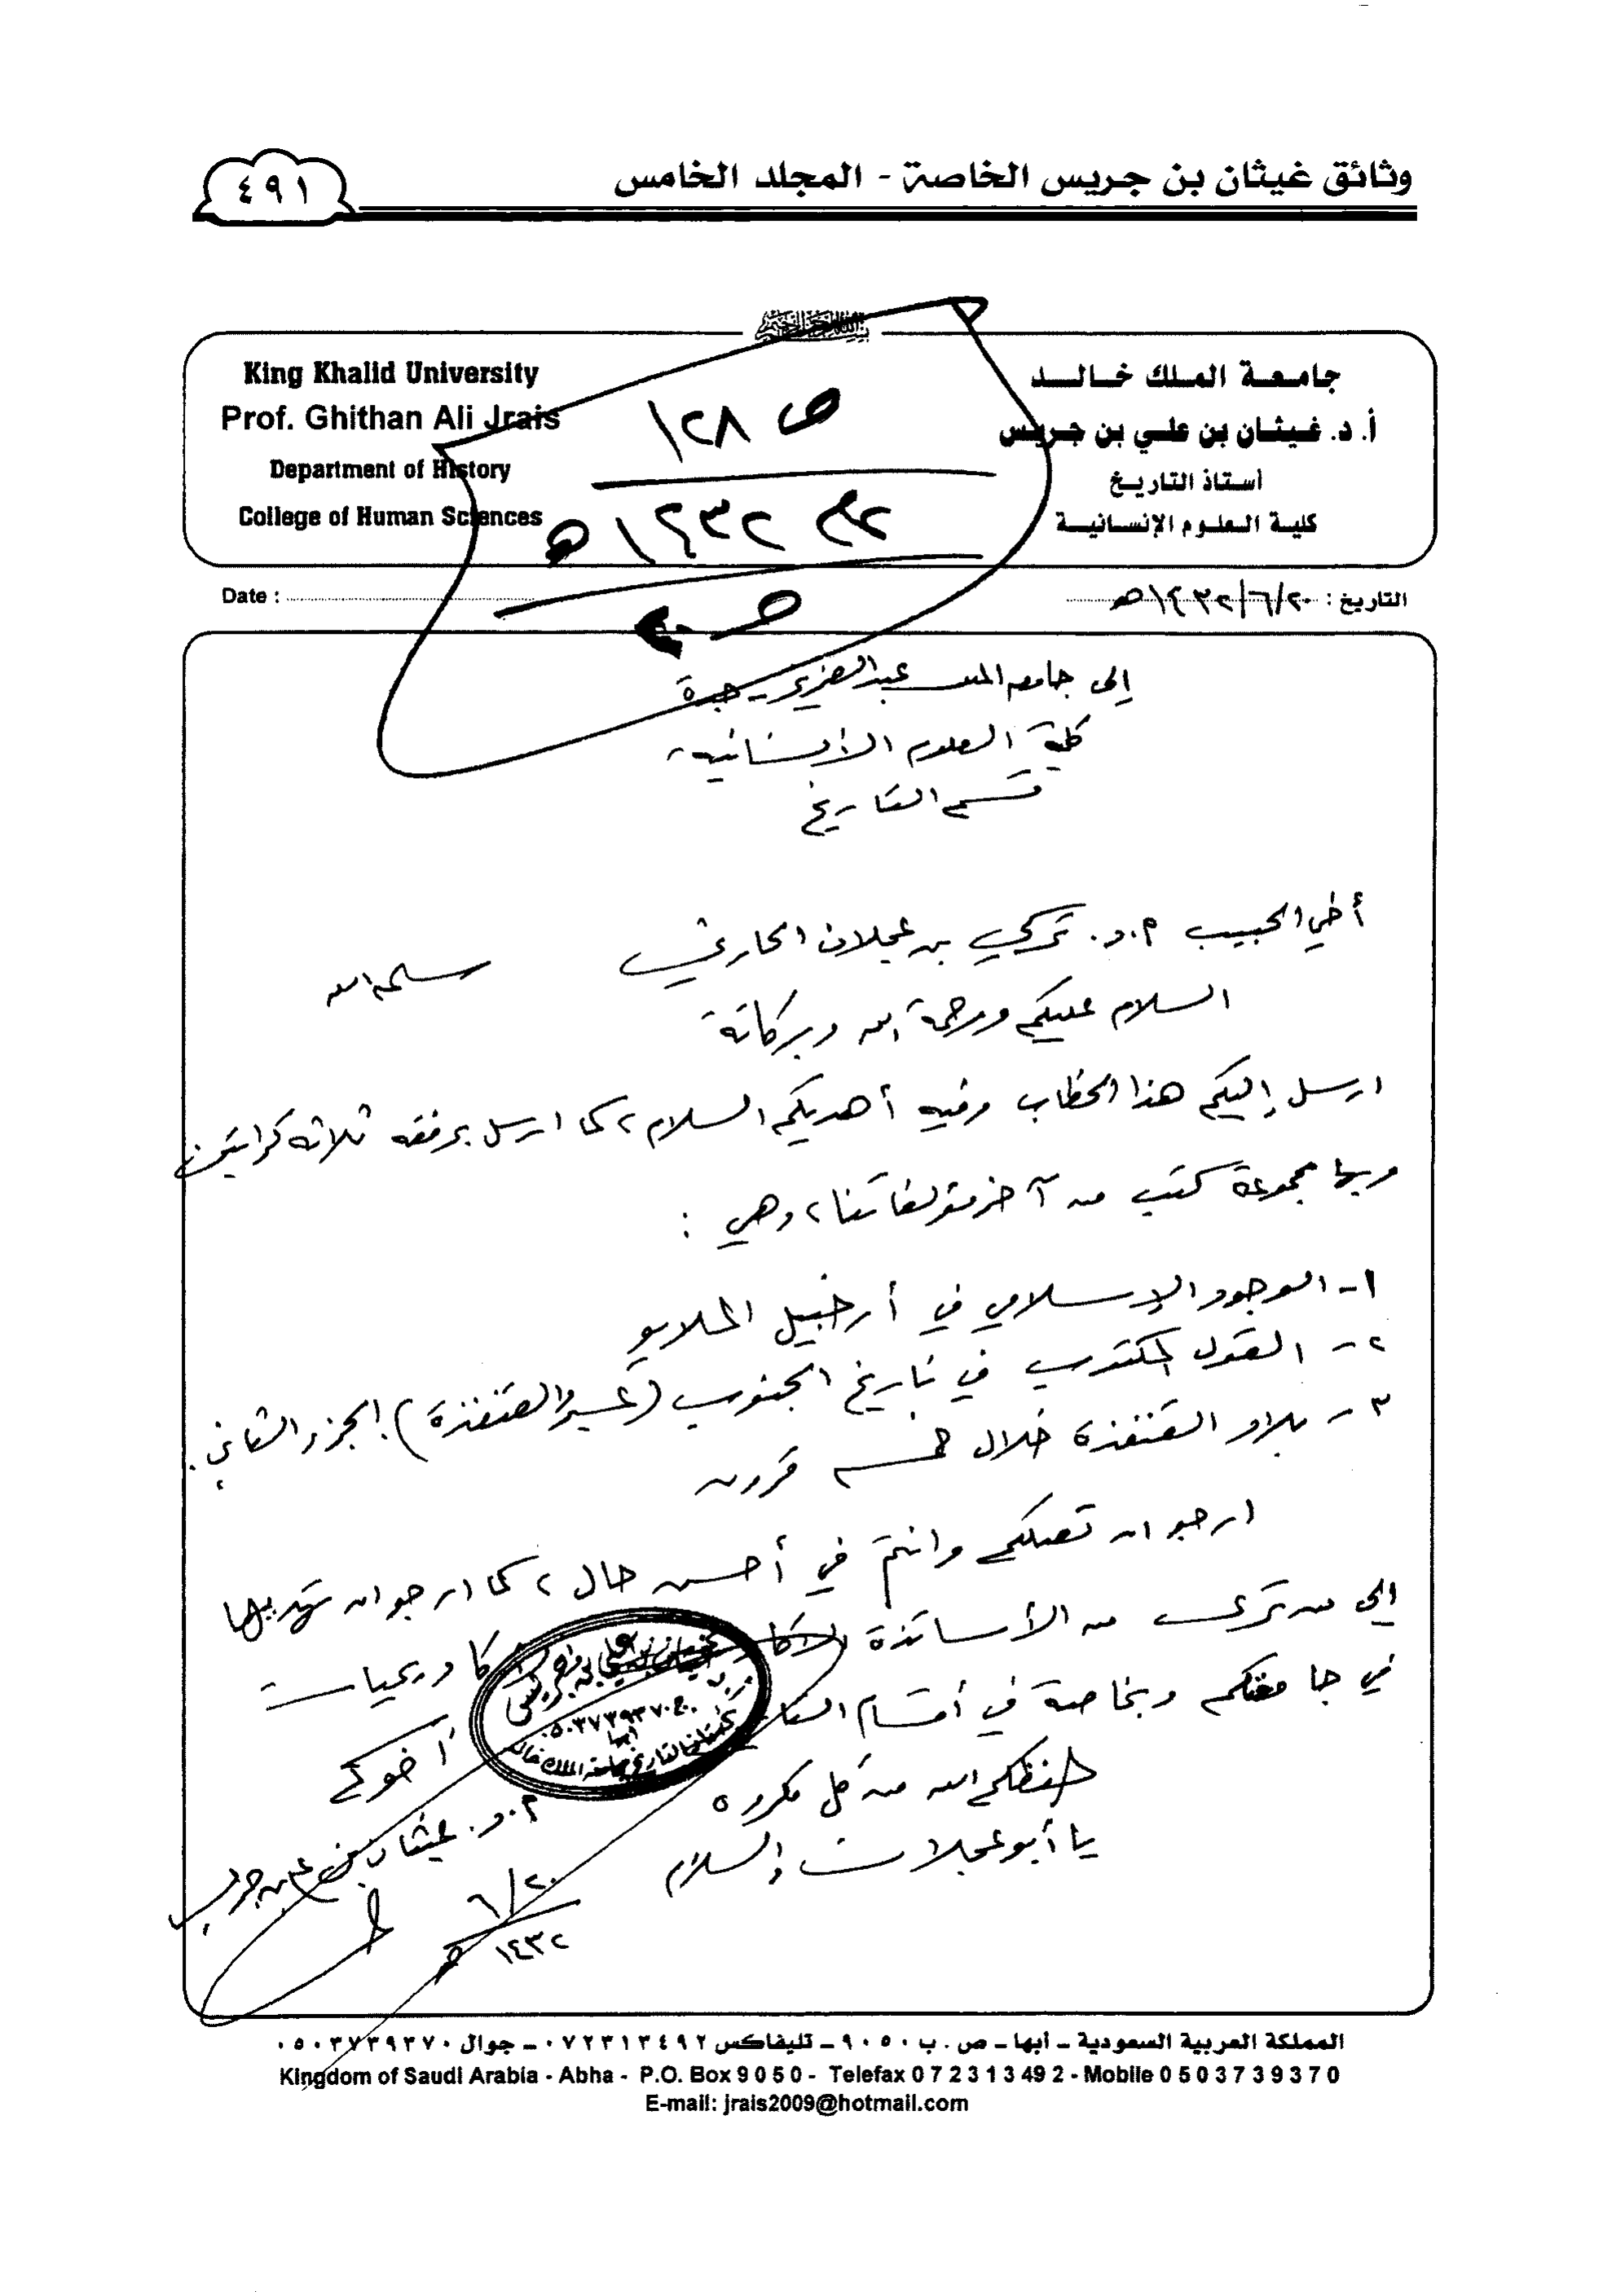 وثائق غيثان بن جريس الخاصة - المجلد الخامس
٤٩١
بسم الله الرحمن الرحيم
جامعة الملك خالد
أ. د. غيثان بن علي بن جريس
أستاذ التاريخ
كلية العلوم الإنسانية
King Khalid University
Prof. Ghithan Ali Jrais
Department of History
College of Human Sciences
ص ١٢٨
عام ١٤٣٢ هـ
التاريخ : ١٤٣٢/٦/٢٠هـ
Date :
إلى جامعة الملك عبدالعزيز - جدة
كلية العلوم الإنسانية
قسم التاريخ
أخي الحبيب أ.د. تركي بن عجلان الحارثي سلمه الله
السلام عليكم ورحمة الله وبركاته
ارسل إليكم هذا الخطاب وفيه أهديكم السلام، كما ارسل برفقه ثلاثة كراتين
وبها مجموعة كتب من آخر مؤلفاتنا، وهي :
١- الوجود الإسلامي في أرخبيل الملايو
٢- القول المكتوب في تاريخ الجنوب (عسير والقنفذة) الجزء الثاني.
٣- بلاد القنفذة خلال خمسة قرون
ارجو ان تصلكم وانتم في أحسن حال، كما ارجو ان تهديها
إلى من ترى من الأساتذة الأكاديميين والأكاديميات
في جامعتكم وبخاصة في أقسام التاريخ
حفظكم الله من كل مكروه
يا أبو عجلان والسلام
أخوكم
أ.د. غيثان بن علي بن جريس
٦/٢٠
١٤٣٢ هـ
٠٥٠٣٧٣٩٣٧٠
أبها
المملكة العربية السعودية - أبها - ص . ب ٩٠٥٠ - تليفاكس ٠٧٢٣١٣٤٩٢ - جوال ٠٥٠٣٧٣٩٣٧٠
Kingdom of Saudi Arabia - Abha - P.O. Box 9 0 5 0 - Telefax 0 7 2 3 1 3 49 2 - Mobile 0 5 0 3 7 3 9 3 7 0
E-mail: jrais2009@hotmail.com